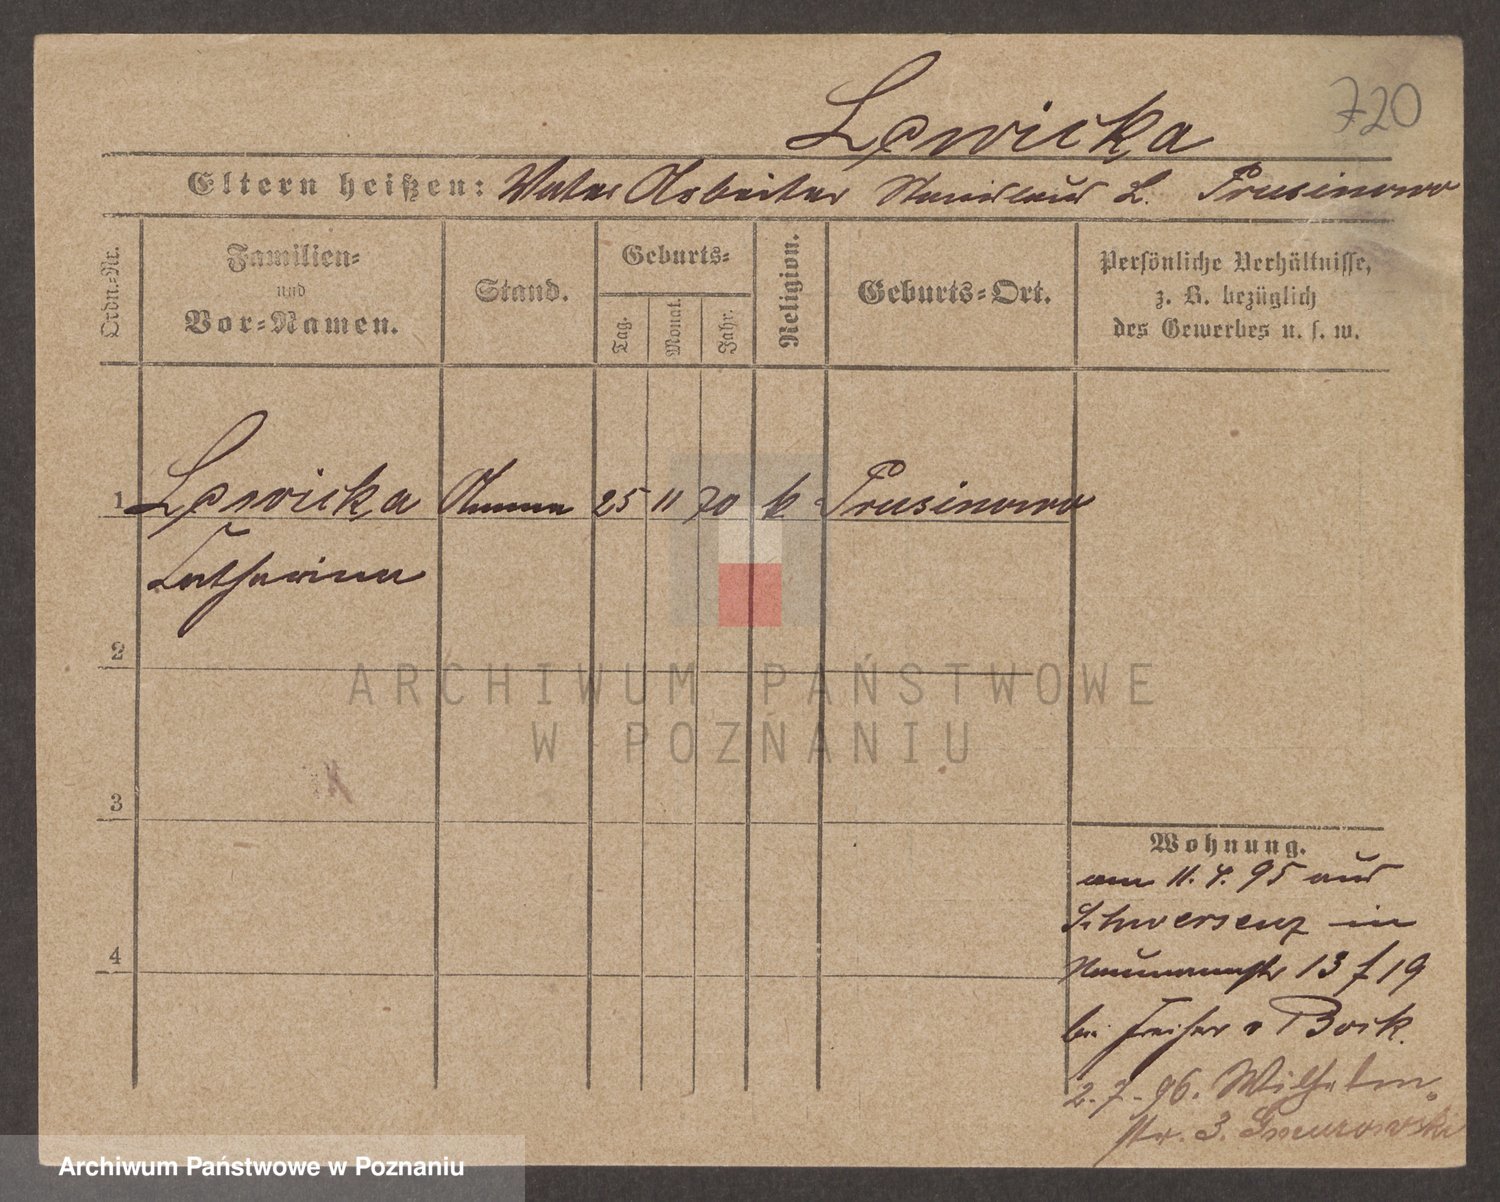 720
Lewicka
Eltern heißen: Vater Arbeiter Stanislaus L. Prusinowo
Ordn.-Nr.
Familien-
und
Vor-Namen.
Stand.
Geburts-
Tag.
Monat.
Jahr.
Religion.
Geburts-Ort.
Persönliche Verhältnisse,
z. B. bezüglich
des Gewerbes u. s. w.
1 Lewicka Amme 25 11 70 k Prusinowo
Catharina
2
3
4
Wohnung.
am 11. 4. 95 aus
Schwersenz in
Naumannstr 13 / 19
bei Freiherr v Bock.
2. 7. 96. Wilhelm
str. 3.
ARCHIWUM PAŃSTWOWE
W POZNANIU
Archiwum Państwowe w Poznaniu